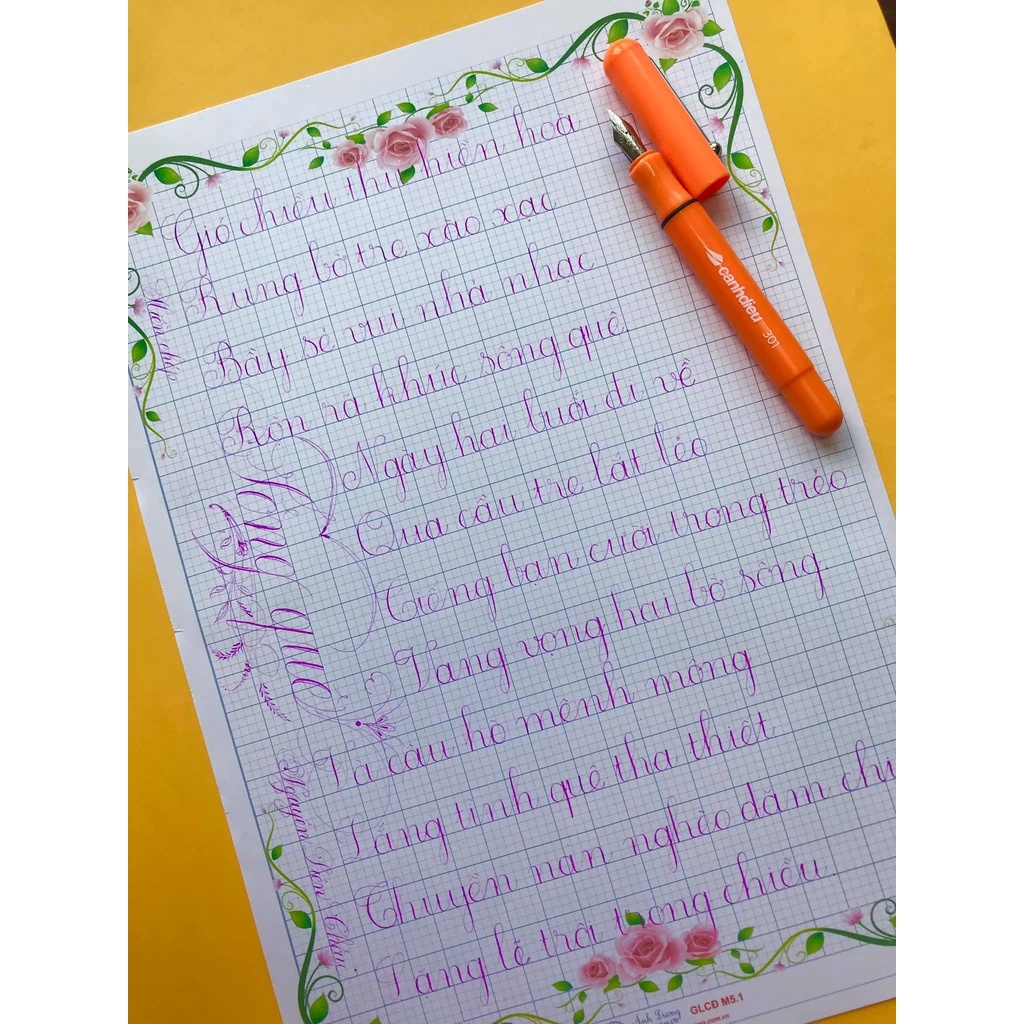 Gió chiều thu hiền hoà
Rung bờ tre xào xạc
Bầy sẻ vui nhã nhạc
Rộn rã khúc sông quê.
Ngày hai buổi đi về
Qua cầu tre lắt lẻo
Tiếng bạn cười trong trẻo
Vang vọng hai bờ sông.
Và câu hò mênh mông
Lắng tình quê tha thiết
Thuyền nan nghèo dăm chi
Lặng lẽ trôi trong chiều.
Sông quê
Nguyễn Liên Châu
eanhdieu 301
Ánh Dương
GLCĐ M5.1